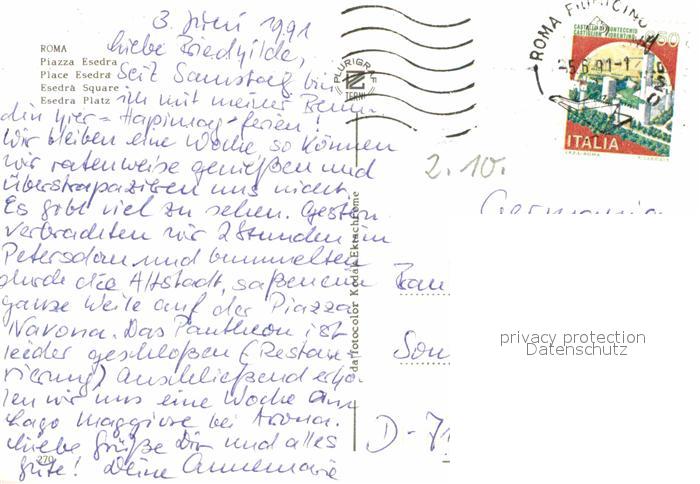 3. Juni 1991
ROMA
Piazza Esedra
Place Esedra
Esedra Square
Esedra Platz
Liebe Friedhilde,
Seit Samstag bin
ich mit meiner
din hier - Hapimag-ferien!
Wir bleiben eine Woche so können
wir ratenweise genießen und
überstrapazieren uns nicht.
Es gibt viel zu sehen. Gestern
verbrachten wir 2 Stunden im
Petersdom und bummelten
durch die Altstadt, saßen eine
ganze Weile auf der Piazza
Navona. Das Pantheon ist
leider geschloßen (Restau-
rierung) Anschließend erho-
len wir uns eine Woche am
Lago Maggiore bei Arona.
Liebe Grüße Dir und alles
Gute! Deine Annemarie
270
PLURIGRAF
TERNI
da fotocolor Kodak Ektachrome
ROMA FIUMICINO
5.6.91-1
CASTELLO DI MONTECCHIO
CASTIGLION FIORENTINO
ITALIA
2.10.
Germania
D-71
privacy protection
Datenschutz